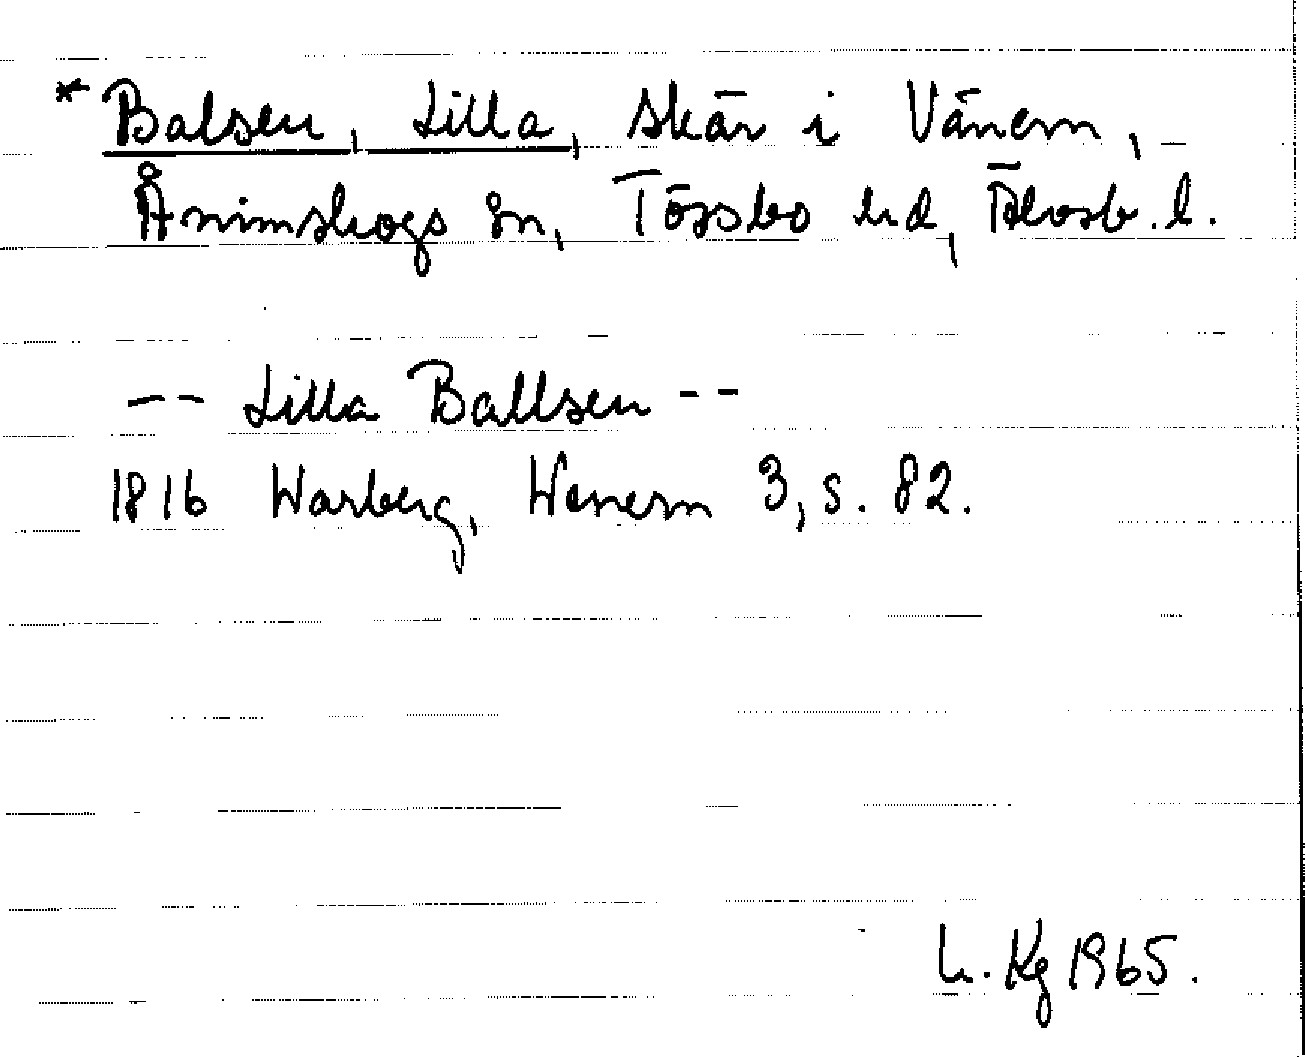 * Balsen, Lilla, skär i Vänern,
Ånimskogs sn, Tössbo hd, Älvsb. l.
-- Lilla Ballsen --
1816 Warberg, Wenern 3, s. 82.
h. Kg 1965.